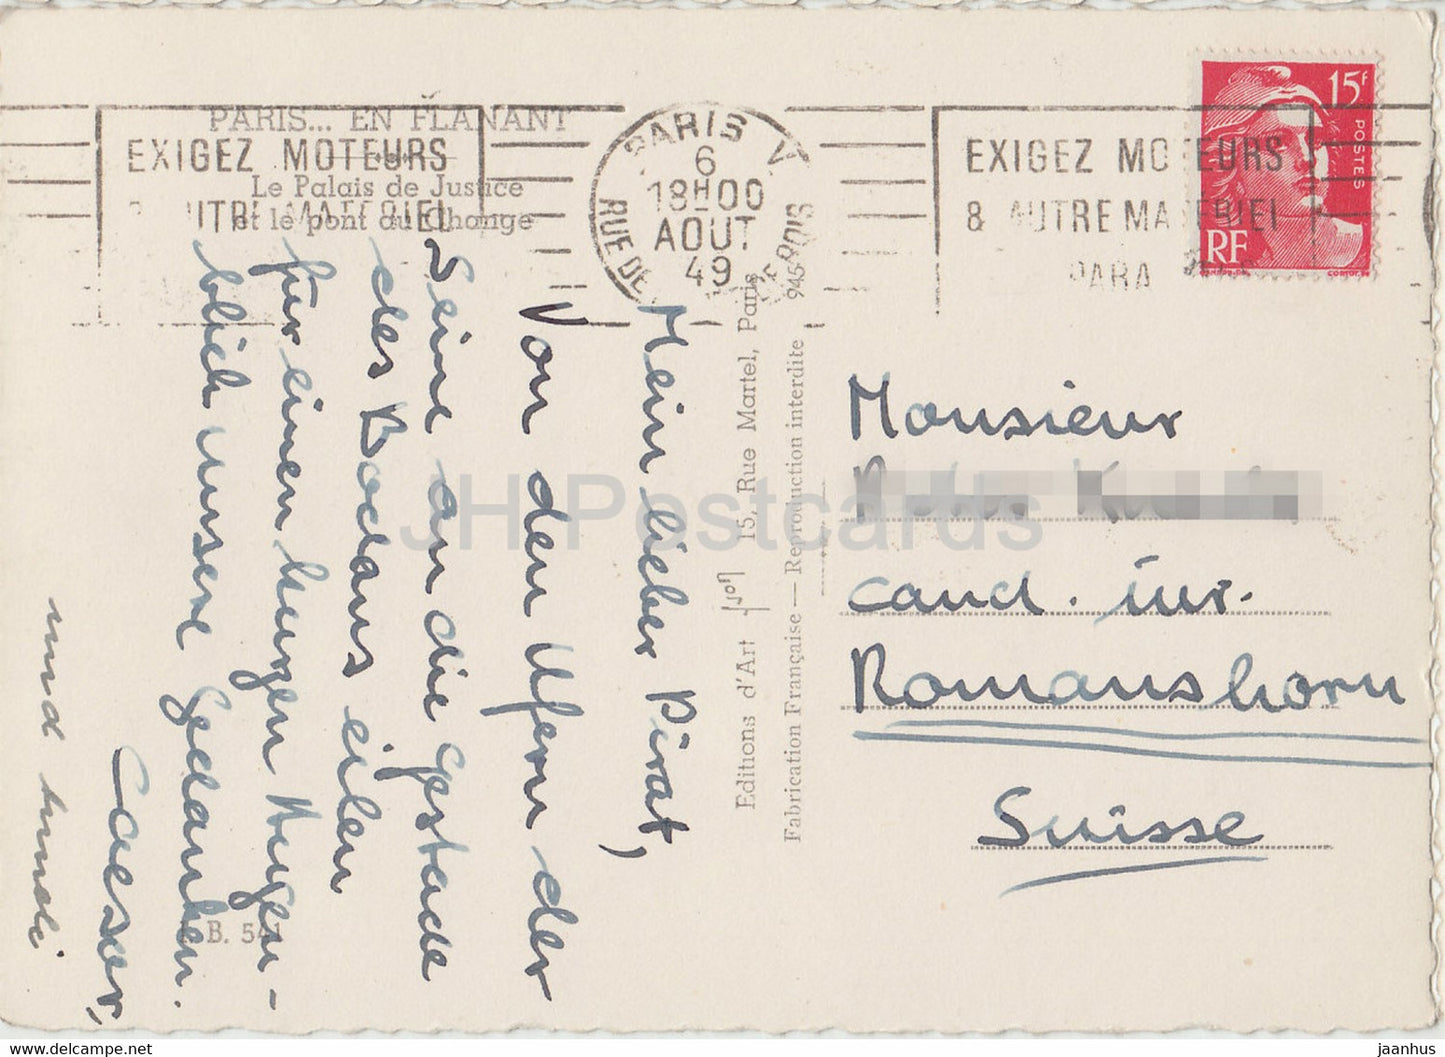 PARIS... EN FLANANT
Le Palais de Justice
et le pont au Change
EXIGEZ MOTEURS
PARIS V
6
18H00
AOUT
49
RUE DE
EXIGEZ MOTEURS
& AUTRE MATERIEL
PARA
15F
POSTES
RF
Mein lieber Pirat,
Von den Ufern der
Seine an die Gestade
des Bodans eilen
für einen kurzen Augen-
blick unsere Gedanken.
Caesar,
und
B. 54
Editions d'Art Yvon 15, Rue Martel, Paris
Fabrication Française — Reproduction interdite 945
Monsieur
cand. iur.
Romanshorn
Suisse
JH Postcards
jaanhus